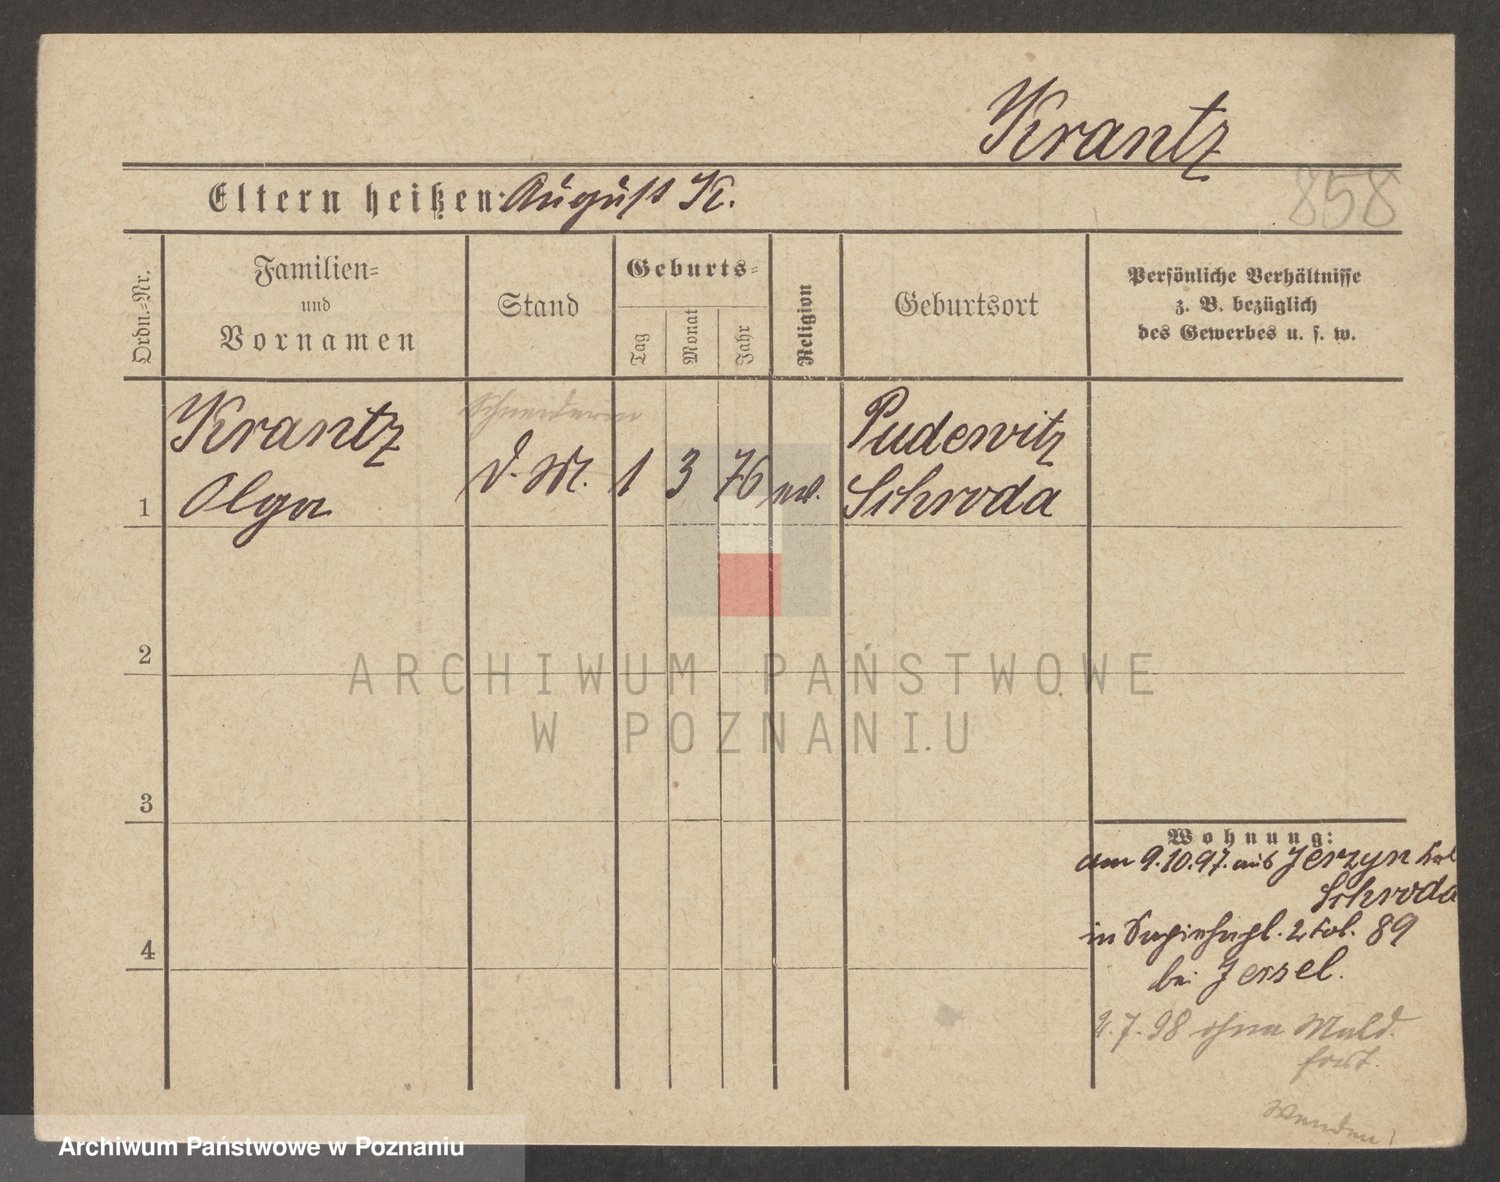 Krantz
858
Eltern heißen: August K.
Ordn.-Nr.
Familien-
und
Vornamen
Stand
Geburts-
Tag
Monat
Jahr
Religion
Geburtsort
Persönliche Verhältnisse
z. B. bezüglich
des Gewerbes u. s. w.
Krantz
Olga
Schneiderin
D. M.
1 3 76
Pudewitz
Schroda
1
2
3
4
ARCHIWUM PAŃSTWOWE
W POZNANIU
Wohnung:
am 9.10.97. aus Jerzyn
Schroda
in 89
bei Jersel.
2.7.98 ohne Meld.
fort.
Wenden!
Archiwum Państwowe w Poznaniu